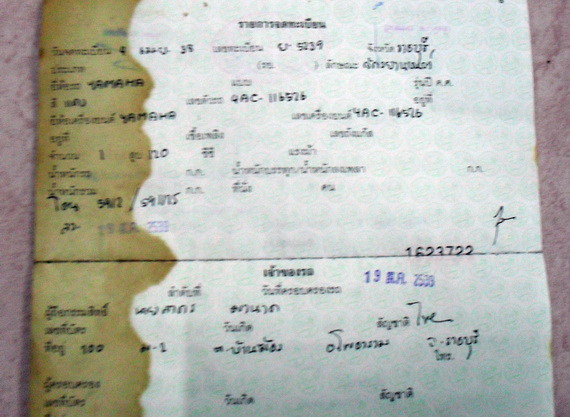 รายการจดทะเบียน
วันจดทะเบียน 4 เม.ย. 38 เลขทะเบียน 5239 จังหวัด ราชบุรี
ประเภท (รย. ) ลักษณะ
ยี่ห้อรถ YAMAHA แบบ รุ่นปี ค.ศ.
สี แดง เลขตัวรถ 4AC-116526 อยู่ที่
ยี่ห้อเครื่องยนต์ YAMAHA เลขเครื่องยนต์ 4AC-116526
อยู่ที่ เชื้อเพลิง เลขถังแก๊ส
จำนวน 1 สูบ 120 ซีซี แรงม้า
น้ำหนักรถ ก.ก. น้ำหนักบรรทุก/น้ำหนักลงเพลา ก.ก.
น้ำหนักรวม ก.ก. ที่นั่ง คน
โอน
2539
1623722
เจ้าของรถ
ลำดับที่ วันที่ครอบครองรถ 19 มี.ค. 2539
ผู้ถือกรรมสิทธิ์ มานาค
เลขที่บัตร วันเกิด สัญชาติ ไทย
ที่อยู่ 100 ม.2 ต.บ้านฆ้อง อ.โพธาราม จ.ราชบุรี
โทร.
ผู้ครอบครอง
เลขที่บัตร วันเกิด สัญชาติ